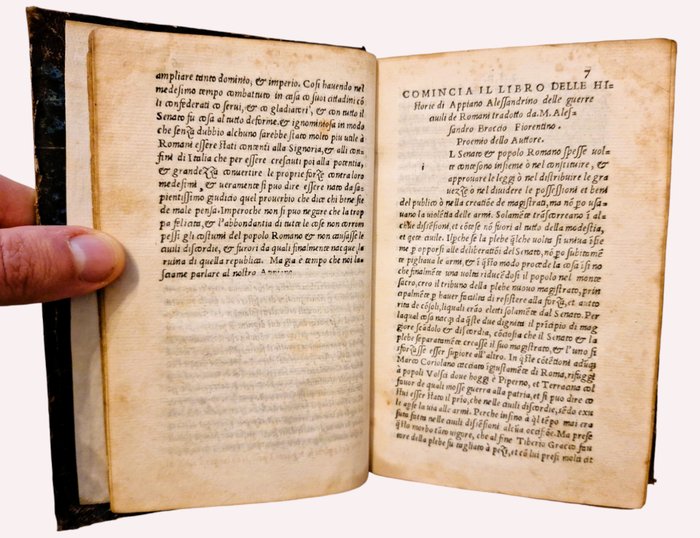 ampliare tanto dominio, & imperio. Cosi hauendo nel
medesimo tempo combattuto in casa co suoi cittadini cõ
li confederati co serui, & co gladiatori, & con tutto il
Senato fu cosa al tutto deforme, & ignominiosa in modo
che senza dubbio alchuno sarebbe stato molto piu utile à
Romani essere stati contenti alla Signoria, & alli con-
fini di Italia che per essere cresciuti poi alla potentia,
& grandezza conuertire le proprie forze contra loro
medesimi, & ueramente si puo dire essere nato da sa-
pientissimo giudicio quel prouerbio che dice chi bene sie
de male pensa. Imperoche non si puo negare che la trop
pa felicita, & l'abbondantia di tutte le cose non corrom
pessi gli costumi del popolo Romano & non causasse le
ciuili discordie, & furori da quali finalmente nacque la
ruina di quella republica. Ma gia è tempo che noi la-
sciamo parlare al nostro Appiano.
7
COMINCIA IL LIBRO DELLE HI-
storie di Appiano Alessandrino delle guerre
ciuili de Romani tradotto da. M. Ales-
sandro Braccio Fiorentino.
Proemio dello Auttore.
i
L Senato & popolo Romano spesse uol-
te contesono insieme ò nel constituire, &
approuare le leggi ò nel distribuire le gra
uezze ò nel diuidere le possessioni et beni
del publico ò nella creatiõe de magistrati, ma nõ po usa-
uano la uiolẽtia delle armi. Solamẽte trãscorreano ĩ al-
che disẽsioni, et cõtese nõ fuori al tutto della modestia,
et quete ciuile. Ilpche se la plebe qlche uolta si uniua ĩsie
me p opporsi alle deliberatiõi del Senato, nõ po subitomẽ
te pigliaua le arme, & ĩ qsto modo procede la cosa ĩsi no
che finalmẽte una uolta riducẽdosi il popolo nel monte
sacro, creo il tribuno della plebe nuouo magistrato, prin
cipalmẽte p hauer faculta di resistere alla forza, et autto
rita de cõsoli, iquali erão eletti solamẽte dal Senato. Per
laqual cosa nacqs da qste due dignita il prĩcipio di mag
giore scãdolo & discordia, cõciosia che il Senato & la
plebe separatamẽte creasse il suo magistrato, & l'uno si
forzasse esser supiore all'altro. In qste cõtẽtioni adũqs
Marco Coriolano cacciato igiustamẽte di Roma, rifuggi
à popoli Volsci doue hoggi è Piperno, et Terracina col
fauor de quali mosse guerra alla patria, et si puo dire co
stui essere stato il prio, che nelle ciuili discordie, sẽdo exu
le apse la uia alle armi. Perche insino à ql tẽpo mai era
suta fatta nelle ciuili disẽsioni alcũa occisiõe. Ma prese
qsto morbo tãto uigore, che al fine Tiberio Gracco fau
tore della plebe fu tagliato à pezi, et cõ lui presi molti cit